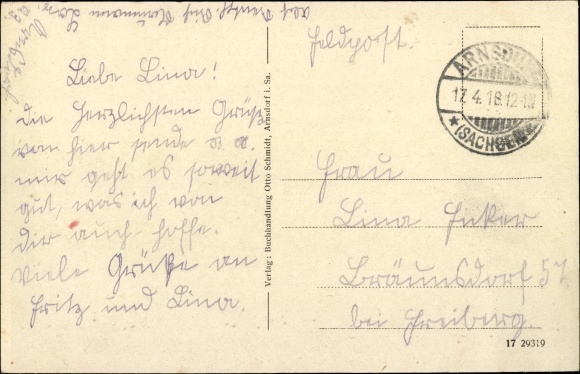 Abs.
Feldpost.
ARNSDORF
17.4.18.12-1N
(SACHSEN)
Liebe Lina!
Die herzlichsten Grüße
von hier sende
mir geht es soweit
gut, was ich von
Dir auch hoffe.
Viele Grüße an
Fritz und Lina.
Verlag: Buchhandlung Otto Schmidt, Arnsdorf i. Sa.
Frau
Lina
Bräunsdorf 57
bei Freiberg.
17 29319